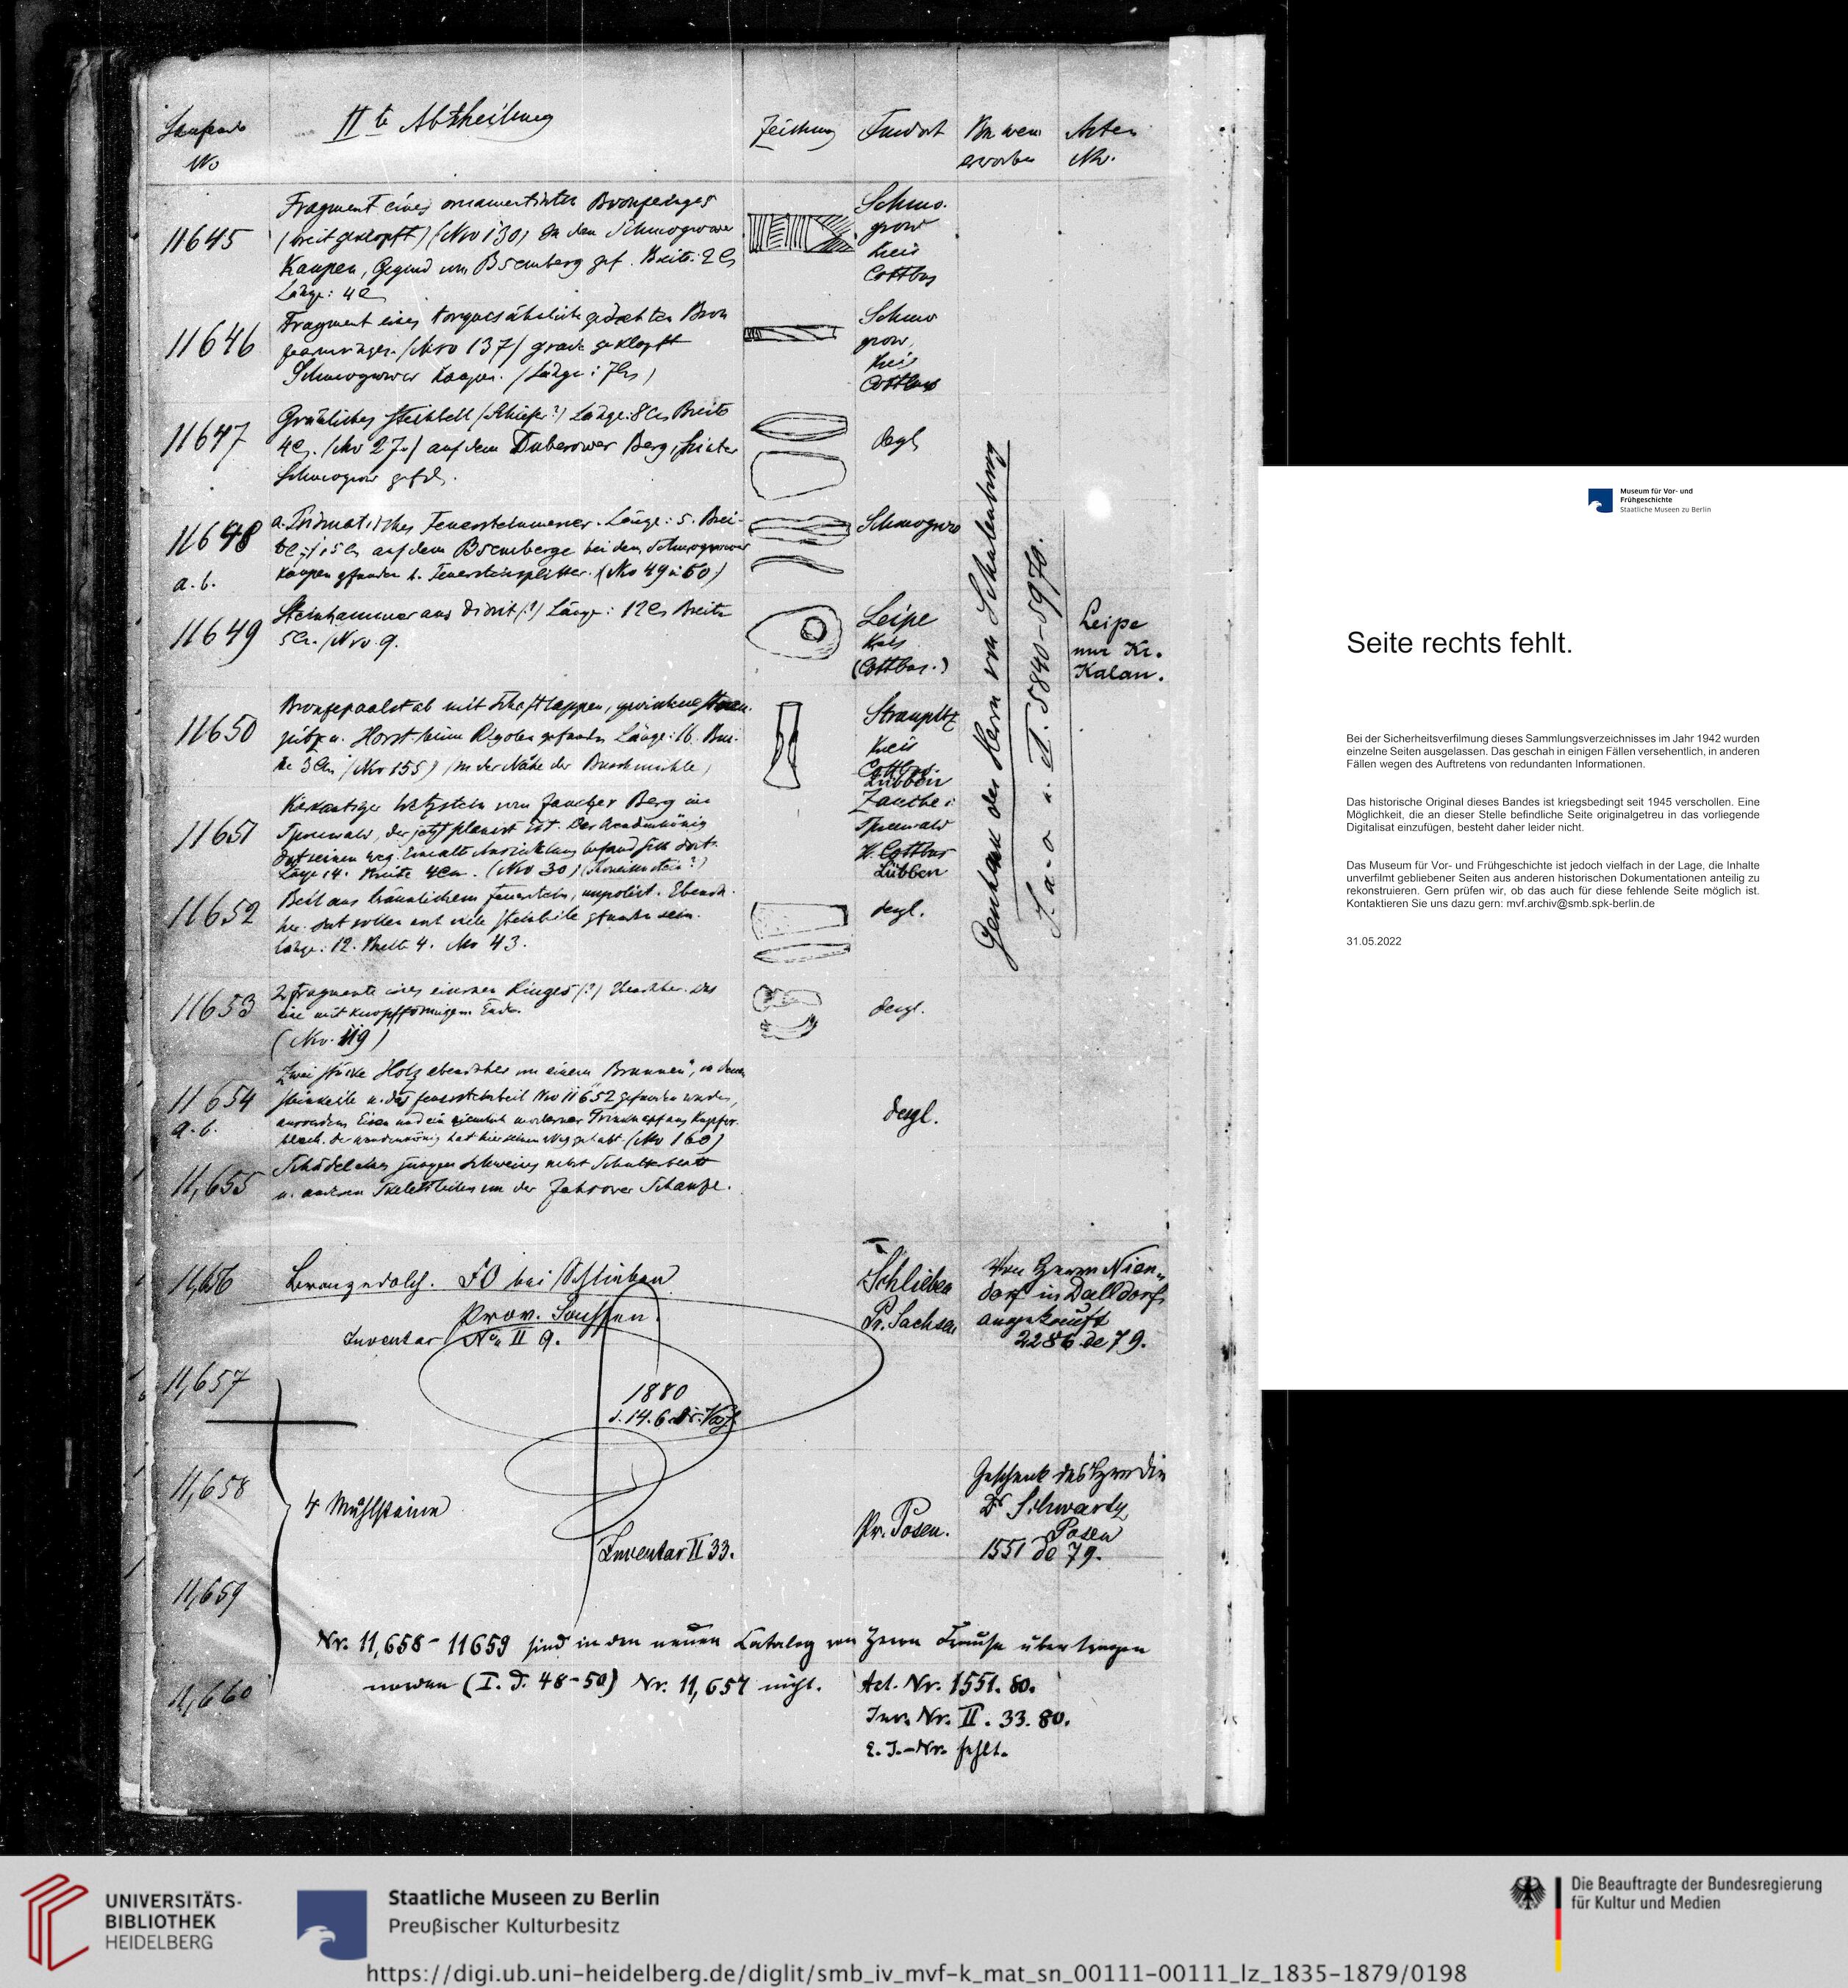 Laufende No
IIte Abtheilung
Zeichnung
Fundort
Von wem erworben
Acten Nr.
11645
Fragment eines ornamentirten Bronzeringes
(breit geklopft) (Nro 130) in den Schmogrower
Kaupen, Gegend um Bsemberg gef. Breite: 2 C
Länge: 4 C
Schmo.
grow
Kreis
Cottbus
11646
Fragment eines torquesähnlich gedrehten Bron
(Nro 137) grade geklopft
Schmogrower Kaupen. (Länge: 7 )
Schmo
grow,
Kreis
Cottbus
11647
Grünliches Steinbeil (Schiefer?) Länge: 8 Breite
4 C. (Nro 27.) auf dem Duberower Berg, hinter
Schmogrow gefd.
desgl.
11648
a. b.
a. Prismatisches Feuersteinmesser. Länge: 5. Brei-
te: 1,5 auf dem Bsemberge bei dem Schmogrower
Kaupen gefunden b. Feuersteinsplitter. (Nro 49 u 60)
Schmogrow
11649
Steinhammer aus Diorit (?) Länge: 12 Breite
5 . (Nro. 9.
Leipe
Kreis
(Cottbus.)
Leipe
nur Kr.
Kalau.
Geschenk des Herrn von Schulenburg
I. a-o u. II. 5840-5970.
11650
Bronzepaalstab mit Schaftlappen, zwischen Strau-
pitz u. Horst beim Rigolen gefunden Länge: 16. Brei-
te 3 (Nro 155) (in der Nähe der Buschmühle)
Straupitz
Kreis
Cottbus.
Lübben
11651
Vierkantiger Wetzstein vom Zaucher Berg im
Spreewald, der jetzt planirt ist. Der Wendenkönig
hat seinen Weg. Eine alte Ansiedlung befand sich dort.
Länge 14. Breite 4 . (Nro 30)
Zauche i
Spreewald
K. Cottbus
Lübben
11652
Beil aus bräunlichem Feuerstein, unpolirt. Ebenda-
her. dort sollen noch viele Steinbeile gefunden sein.
Länge: 12. Breite 4. Nro 43.
desgl.
11653
2 Fragmente eines eisernen Ringes (?) Ebendaher. Das
eine mit knopfförmigem Ende.
(Nro. 119)
desgl.
11654
a. b.
Zwei Stücke Holz ebendaher von einem "Brunnen", in dem
Steinbeile u. das Feuersteinbeil Nro 11652 gefunden wurden,
ausserdem Eisen und ein ziemlich moderner Trinknapf aus Kupfer-
blech. Der Wendenkönig hat hier seinen Weg gehabt. (Nro 160)
desgl.
11,655
Schädel eines jungen Schweines nebst Schulterblatt
u. anderen Skelettheilen von der Zahsower Schanze.
11,656
Bronzedolch. FO bei Schlieben
Prov. Sachsen.
Inventar No. II 9.
Schlieben
Pr. Sachsen
Von Herrn Nien-
dorf in Dalldorf
angekauft
2286 de 79.
11,657
1880
d. 14.6. Dr. Voß.
11,658
4 Mühlsteine
Inventar II 33.
Pr. Posen.
Geschenk des Herrn Dir
Dr Schwartz
Posen
1551 de 79.
11,659
Nr. 11,658-11659 sind in den neuen Catalog von Herrn Krause übertragen
worden (I. d. 48-50) Nr. 11,657 nicht.
11,660
Act. Nr. 1551. 80.
Inv. Nr. II. 33. 80.
E. J.-Nr. fehlt.
Museum für Vor- und
Frühgeschichte
Staatliche Museen zu Berlin
Seite rechts fehlt.
Bei der Sicherheitsverfilmung dieses Sammlungsverzeichnisses im Jahr 1942 wurden
einzelne Seiten ausgelassen. Das geschah in einigen Fällen versehentlich, in anderen
Fällen wegen des Auftretens von redundanten Informationen.
Das historische Original dieses Bandes ist kriegsbedingt seit 1945 verschollen. Eine
Möglichkeit, die an dieser Stelle befindliche Seite originalgetreu in das vorliegende
Digitalisat einzufügen, besteht daher leider nicht.
Das Museum für Vor- und Frühgeschichte ist jedoch vielfach in der Lage, die Inhalte
unverfilmt gebliebener Seiten aus anderen historischen Dokumentationen anteilig zu
rekonstruieren. Gern prüfen wir, ob das auch für diese fehlende Seite möglich ist.
Kontaktieren Sie uns dazu gern: mvf.archiv@smb.spk-berlin.de
31.05.2022
UNIVERSITÄTS-
BIBLIOTHEK
HEIDELBERG
Staatliche Museen zu Berlin
Preußischer Kulturbesitz
Die Beauftragte der Bundesregierung
für Kultur und Medien
https://digi.ub.uni-heidelberg.de/diglit/smb_iv_mvf-k_mat_sn_00111-00111_lz_1835-1879/0198